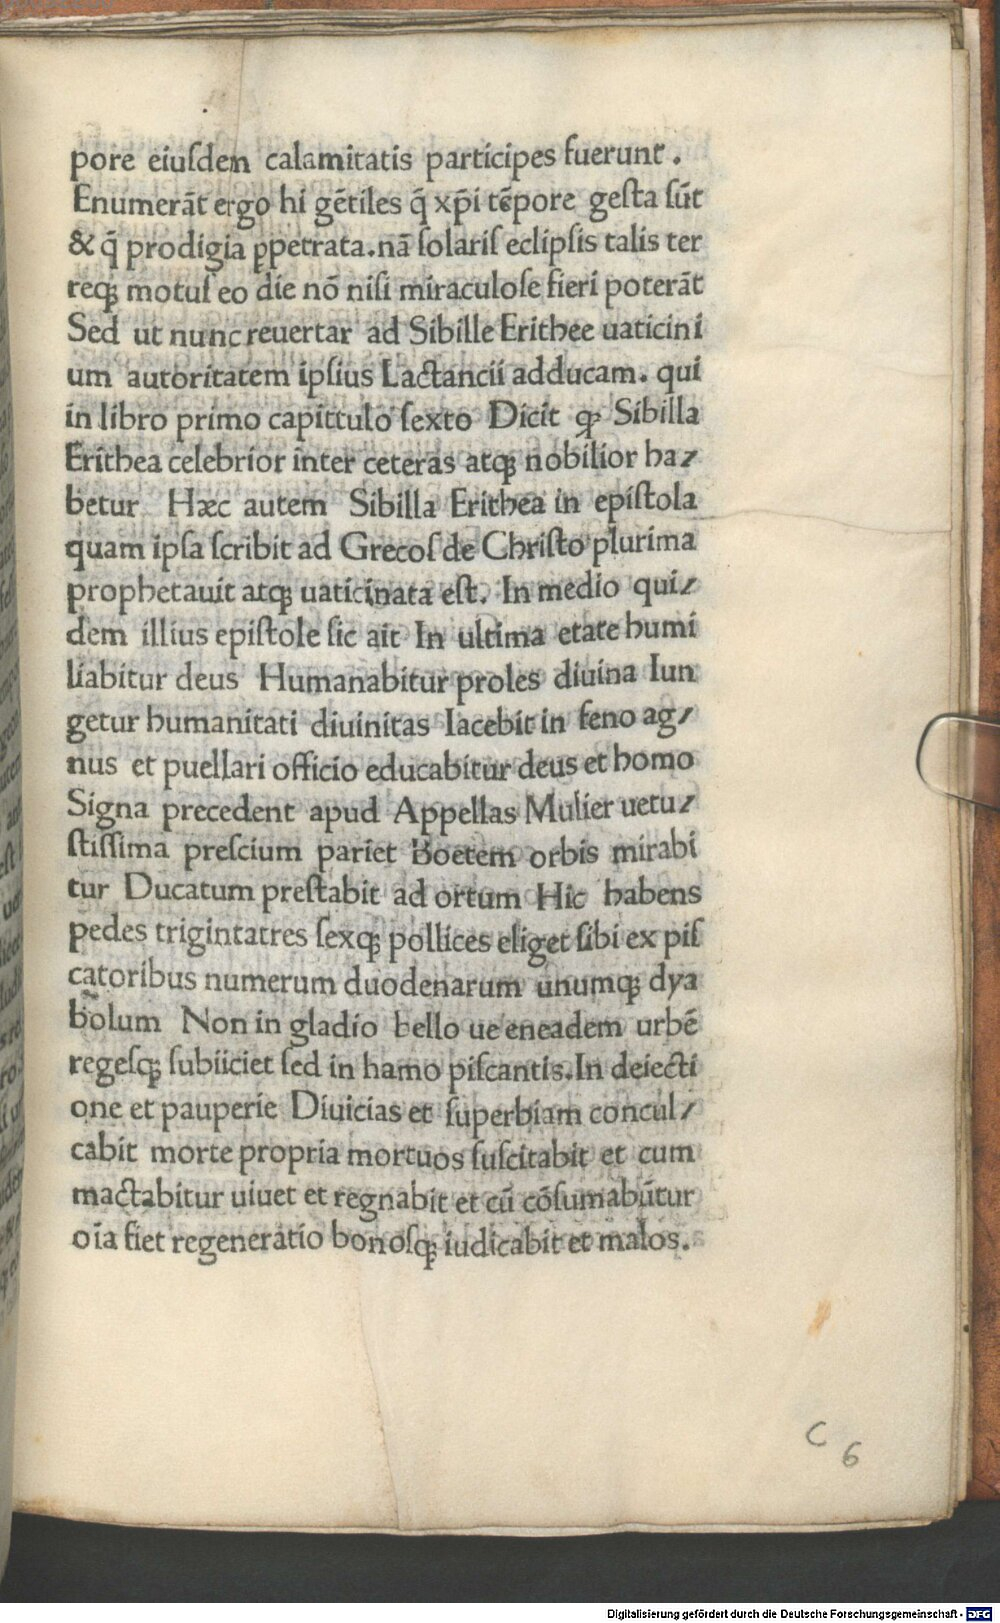 pore eiuſdem calamitatis participes fuerunt .
Enumerāt ergo hi gētiles q̄ xp̄i tēpore geſta ſūt
& q̄ prodigia ꝑpetrata.nā ſolariſ eclipſis talis ter
reqꝫ motuſ eo die nō niſi miraculoſe fieri poterāt
Sed ut nunc reuertar ad Sibille Erithee uaticini
um autoritatem ipſius Lactancii adducam. qui
in libro primo capittulo ſexto Dicit ꝙ Sibilla
Erithea celebrior inter ceteras atqꝫ nobilior ha/
betur Hæc autem Sibilla Erithea in epiſtola
quam ipſa ſcribit ad Grecoſ de Chriſto plurima
prophetauit atqꝫ uaticinata eſt. In medio qui/
dem illius epiſtole ſic ait In ultima etate humi
liabitur deus Humanabitur proles diuina Iun
getur humanitati diuinitas Iacebit in feno ag/
nus et puellari officio educabitur deus et homo
Signa precedent apud Appellas Mulier uetu/
ſtiſſima preſcium pariet Boetem orbis mirabi
tur Ducatum preſtabit ad ortum Hic habens
pedes trigintatres ſexqꝫ pollices eliget ſibi ex piſ
catoribus numerum duodenarum unumqꝫ dya
bolum Non in gladio bello ue eneadem urbē
regeſqꝫ ſubiiciet ſed in hamo piſcantis.In deiecti
one et pauperie Diuicias et ſuperbiam concul/
cabit morte propria mortuos ſuſcitabit et cum
mactabitur uiuet et regnabit et cū cōſumabūtur
oīa fiet regeneratio bonoſqꝫ iudicabit et malos.
c 6
Digitalisierung gefördert durch die Deutsche Forschungsgemeinschaft - DFG